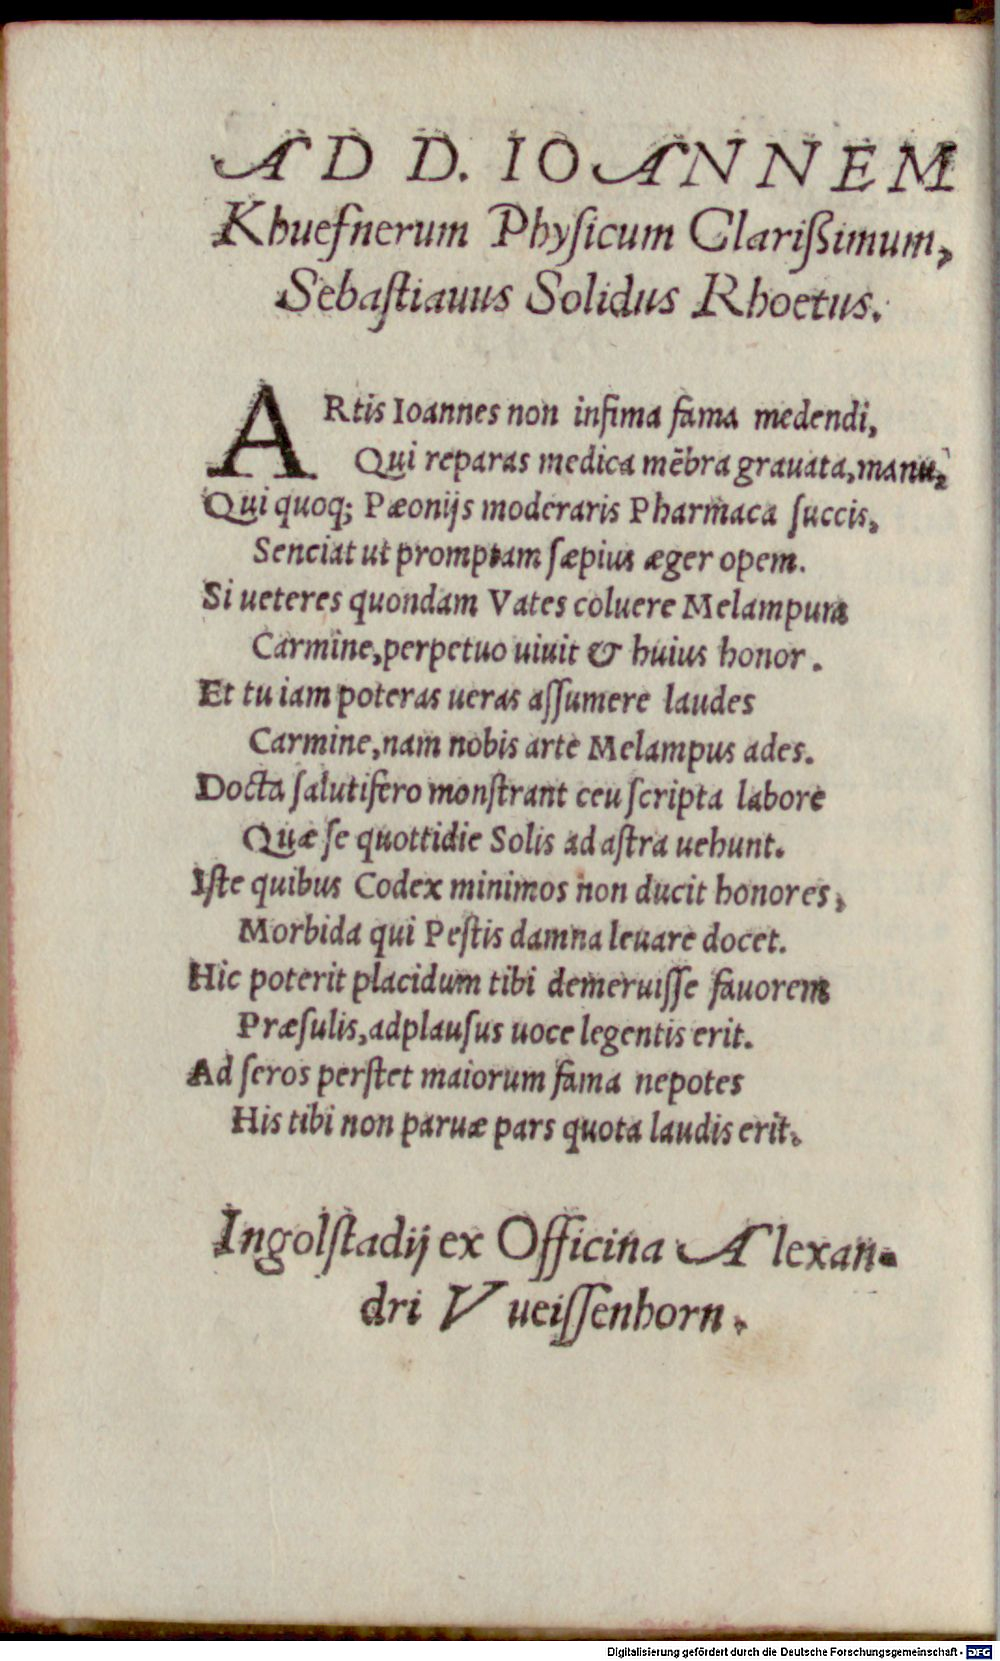 AD D. IOANNEM
Khuefnerum Physicum Clarißimum,
Sebaſtiauus Solidus Rhoetus.
ARtis Ioannes non infima fama medendi,
Qui reparas medica mēbra grauata, manu,
Qui quoq; Pæonijs moderaris Pharmaca ſuccis,
Senciat ut promptam ſæpius æger opem.
Si ueteres quondam Vates coluere Melampum
Carmine, perpetuo uiuit & huius honor.
Et tu iam poteras ueras aſſumere laudes
Carmine, nam nobis arte Melampus ades.
Docta ſalutifero monſtrant ceu ſcripta labore
Quæ ſe quottidie Solis ad aſtra uehunt.
Iſte quibus Codex minimos non ducit honores,
Morbida qui Peſtis damna leuare docet.
Hic poterit placidum tibi demeruiſſe fauorem
Præſulis, adplauſus uoce legentis erit.
Ad ſeros perſtet maiorum fama nepotes
His tibi non paruæ pars quota laudis erit.
Ingolſtadij ex Officina Alexan-
dri Vueiſſenhorn.
Digitalisierung gefördert durch die Deutsche Forschungsgemeinschaft - DFG